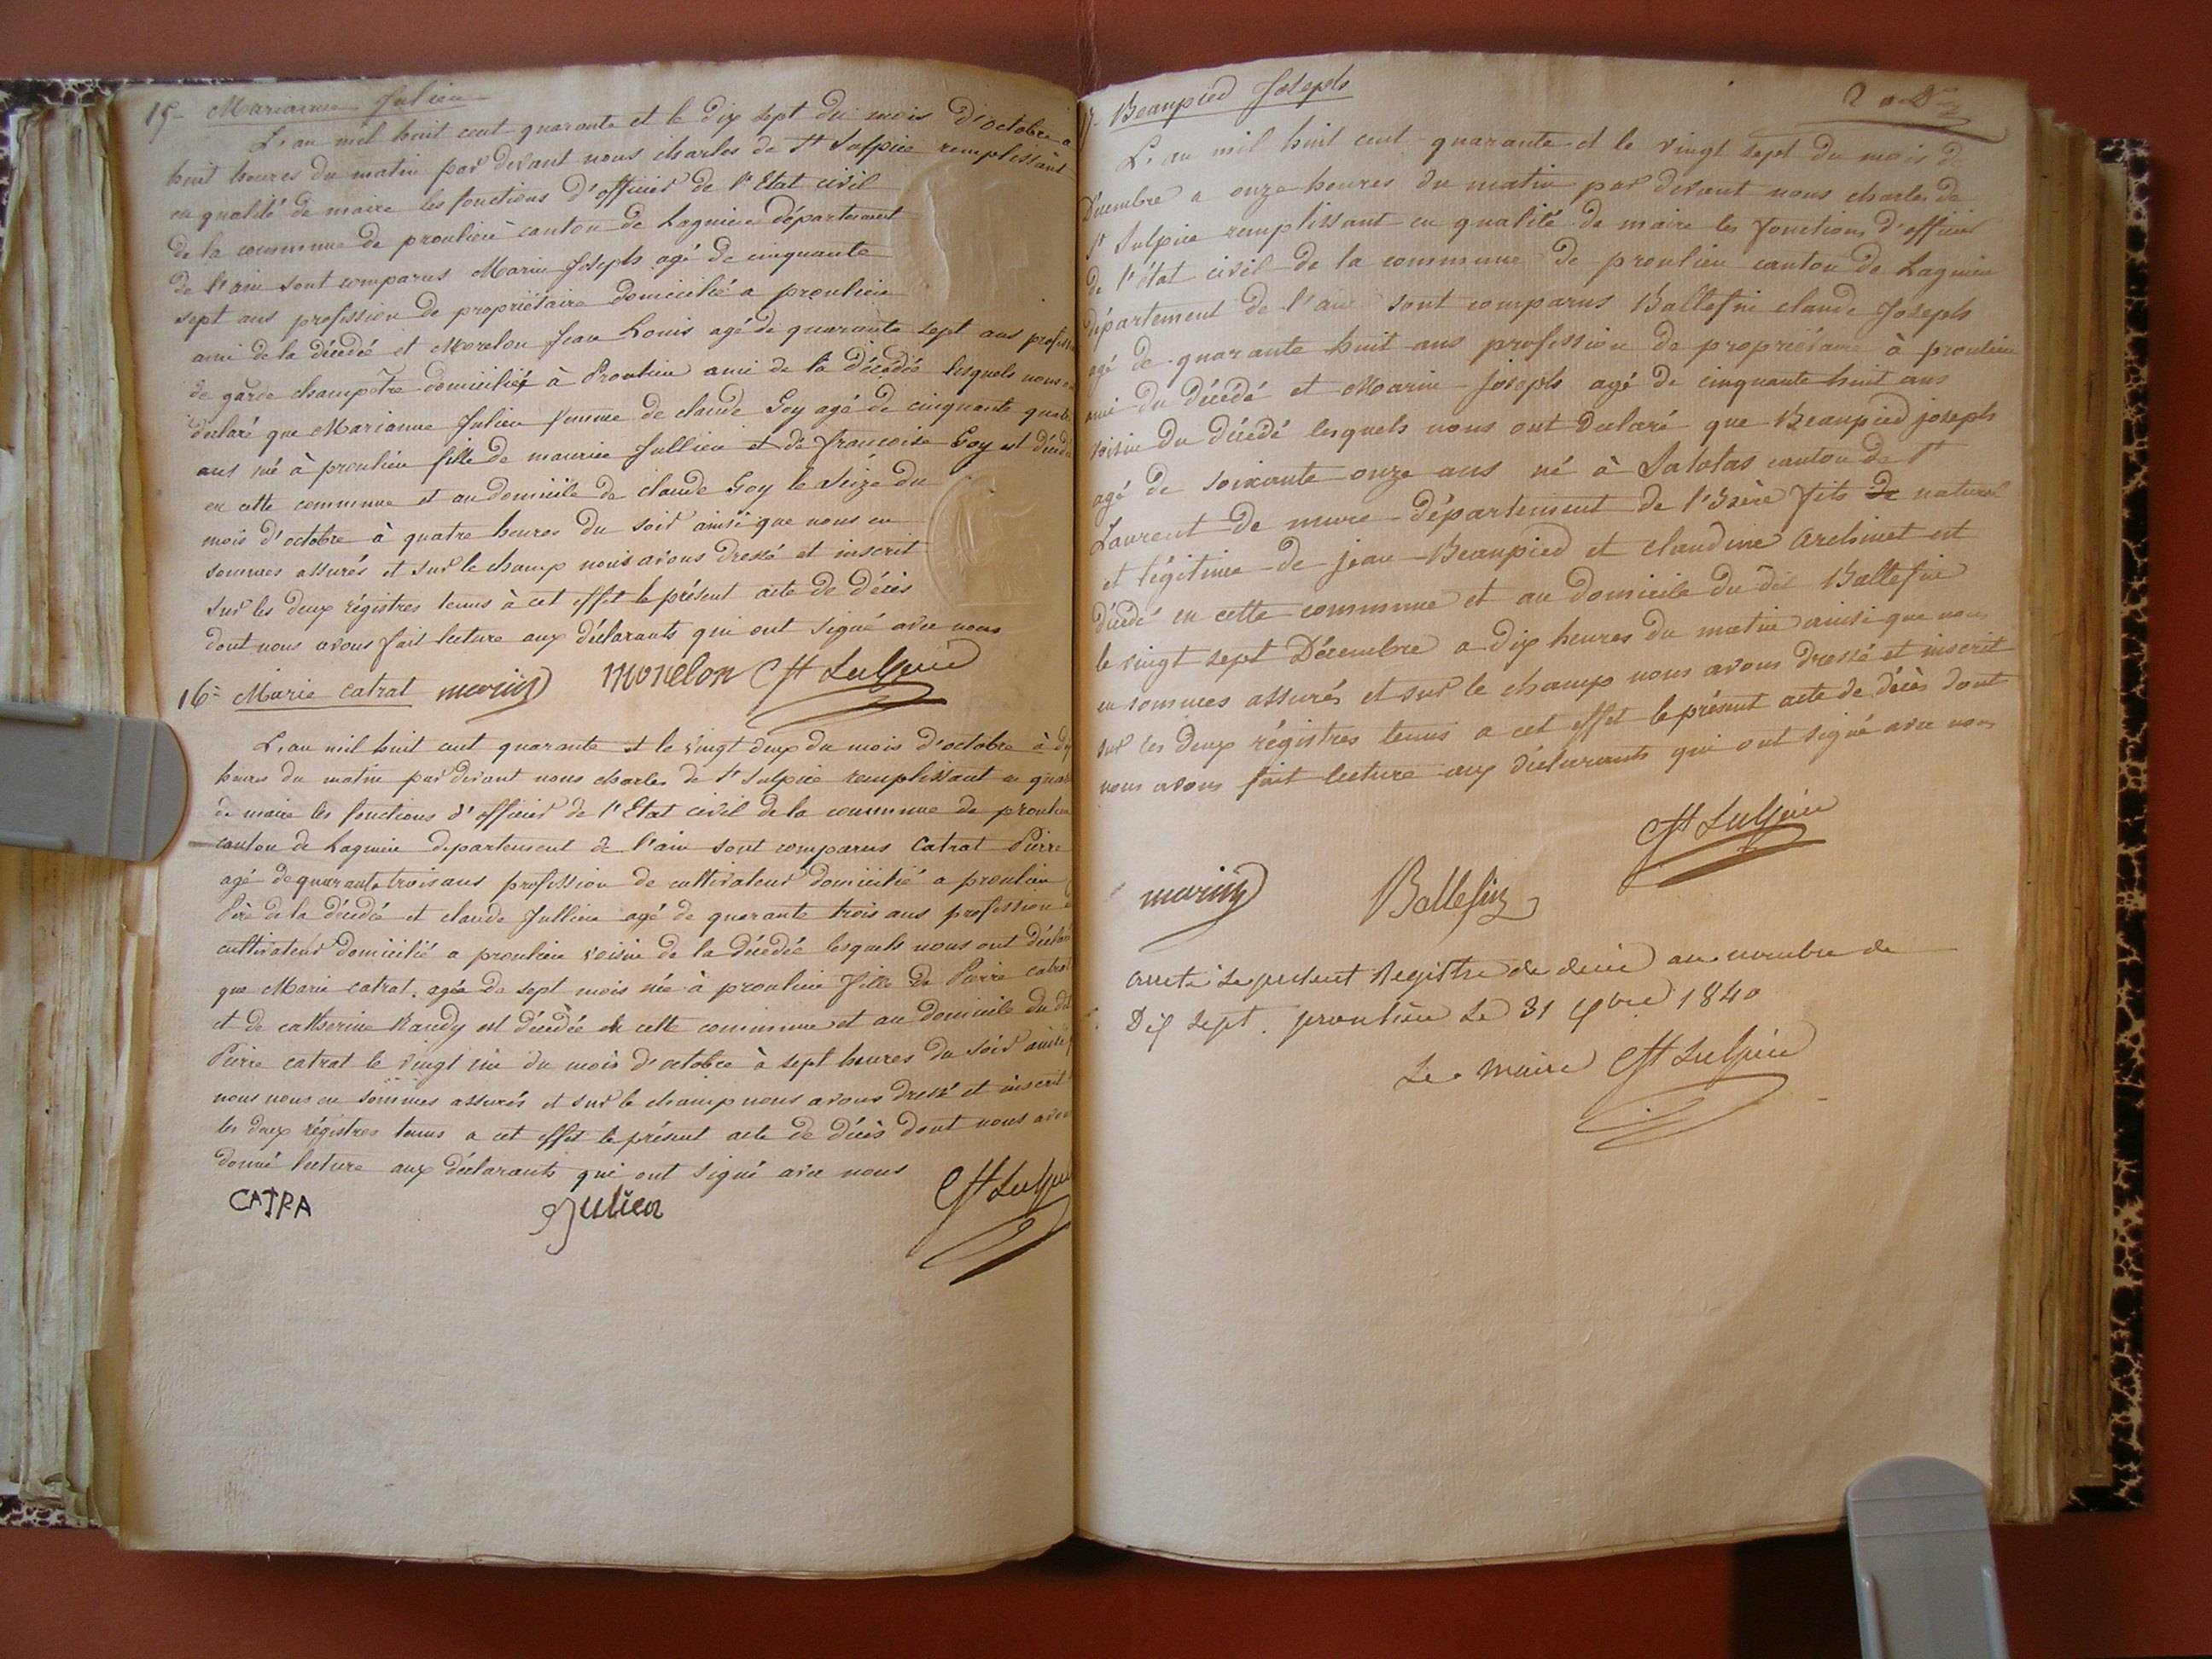 15- Marianne Julien
L'an mil huit cent quarante et le dix sept du mois d'octobre a
huit heures du matin par devant nous charles de St Sulpice remplissant
en qualité de maire les fonctions d'officier de l'Etat civil
de la commune de proulieu canton de Lagnieu département
de l'ain sont comparus Marin Joseph agé de cinquante
sept ans profession de propriétaire domicilié a proulieu
ami de la décédée et Morelon Jean Louis agé de quarante sept ans
de garde champêtre domicilié à Proulieu ami de la décédée lesquels nous
déclaré que Marianne Julien femme de claude Goy agé de cinquante
ans né à proulieu fille de maurice Jullien et de francoise Goy est
en cette commune et au domicile de claude Goy le seize du
mois d'octobre à quatre heures du soir ainsi que nous en
sommes assurés et sur le champ nous avons dressé et inscrit
sur les deux régistres tenus à cet effet le présent acte de décès
dont nous avons fait lecture aux déclarants qui ont signé avec nous
marin morelon St Sulpice
16= Marie catrat
L'an mil huit cent quarante et le vingt deux du mois d'octobre à
heures du matin par devant nous charles de St Sulpice remplissant en
de maire les fonctions d'officier de l'Etat civil de la commune de proulieu
canton de Lagnieu departement de l'ain sont comparus Catrat Pierre
agé de quarante trois ans profession de cultivateur domicilié a proulieu
Père de la décédée et claude Jullien agé de quarante trois ans profession
cultivateur domicilié a proulieu voisin de la décédée lesquels nous ont
que Marie catrat agée de sept mois née à proulieu fille de Pierre catrat
et de catherine Randy est décédée en cette commune et au domicile du dit
Pierre catrat le vingt un du mois d'octobre à sept heures du soir ainsi
nous nous en sommes assurés et sur le champ nous avons dressé et inscrit
les deux régistres tenus a cet effet le présent acte de décès dont nous
donné lecture aux déclarants qui ont signé avec nous
CATRA Julien St Sulpice
17- Beaupied Joseph
L'an mil huit cent quarante et le vingt sept du mois de
Décembre a onze heures du matin par devant nous charles de
St Sulpice remplissant en qualité de maire les fonctions d'officier
de l'état civil de la commune de proulieu canton de Lagnieu
département de l'ain sont comparus Ballefin claude Joseph
agé de quarante huit ans profession de propriétaire à proulieu
ami du décédé et Marin joseph agé de cinquante huit ans
voisin du décédé lesquels nous ont declaré que Beaupied joseph
agé de soixante onze ans né à Satolas canton de St
Laurent de mure département de l'Isère fils de naturel
et légitime de jean Beaupied et claudine Archinet est
décédé en cette commune et au domicile du dit Ballefin
le vingt sept Décembre a dix heures du matin ainsi que nous
en sommes assurés et sur le champ nous avons dressé et inscrit
sur les deux régistres tenus a cet effet le présent acte de décès dont
nous avons fait lecture aux déclarants qui ont signé avec nous
St Sulpice
marin Ballefin
arreté Le present Registre de décès au nombre de
Dix sept. proulieu Le 31 1840
Le Maire St Sulpice